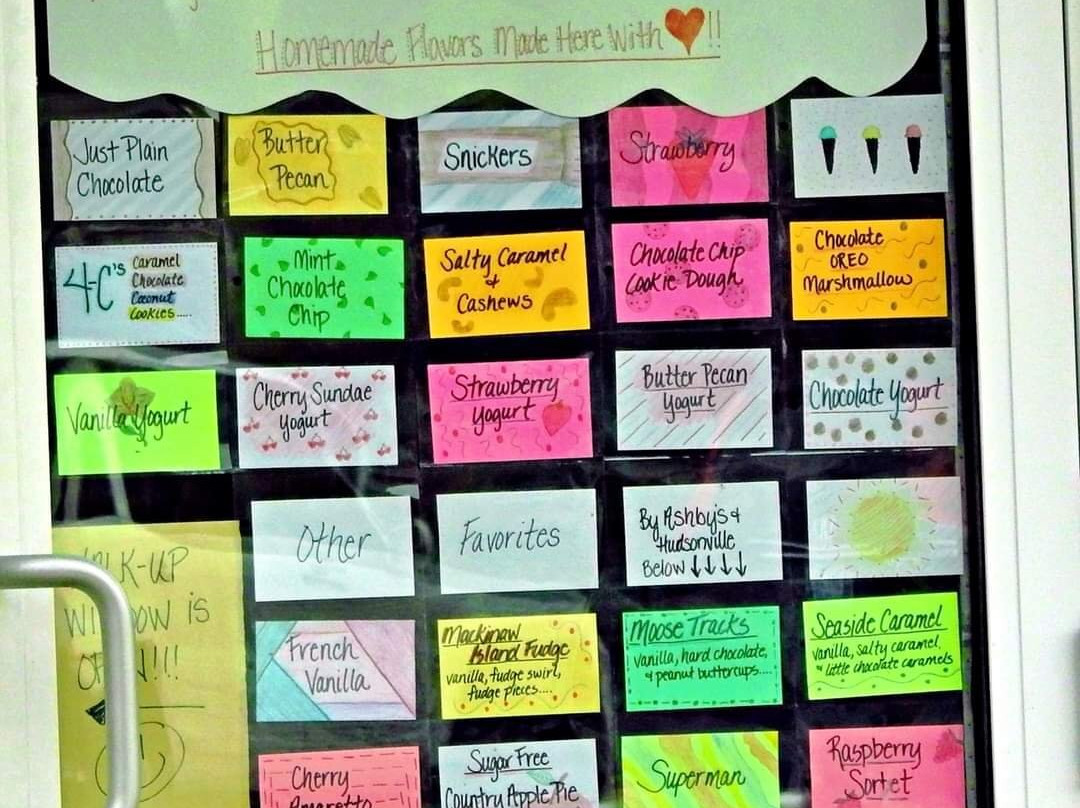 Homemade Flavors Made Here With ❤!!
Just Plain
Chocolate
Butter
Pecan
Snickers
Strawberry
4-C's
Caramel
Chocolate
Coconut
Cookies.....
Mint
Chocolate
Chip
Salty Caramel
&
Cashews
Chocolate Chip
Cookie Dough
Chocolate
OREO
Marshmallow
Vanilla Yogurt
Cherry Sundae
Yogurt
Strawberry
yogurt
Butter Pecan
Yogurt
Chocolate Yogurt
Other
Favorites
By Ashby's &
Hudsonville
Below ↓↓↓↓
French
Vanilla
Mackinaw
Island Fudge
vanilla, fudge swirl,
fudge pieces....
Moose Tracks
vanilla, hard chocolate,
& peanut buttercups....
Seaside Caramel
vanilla, salty caramel,
& little chocolate caramels
Cherry
Amaretto
Sugar Free
Country Apple Pie
Superman
Raspberry
Sorbet
-UP
IS